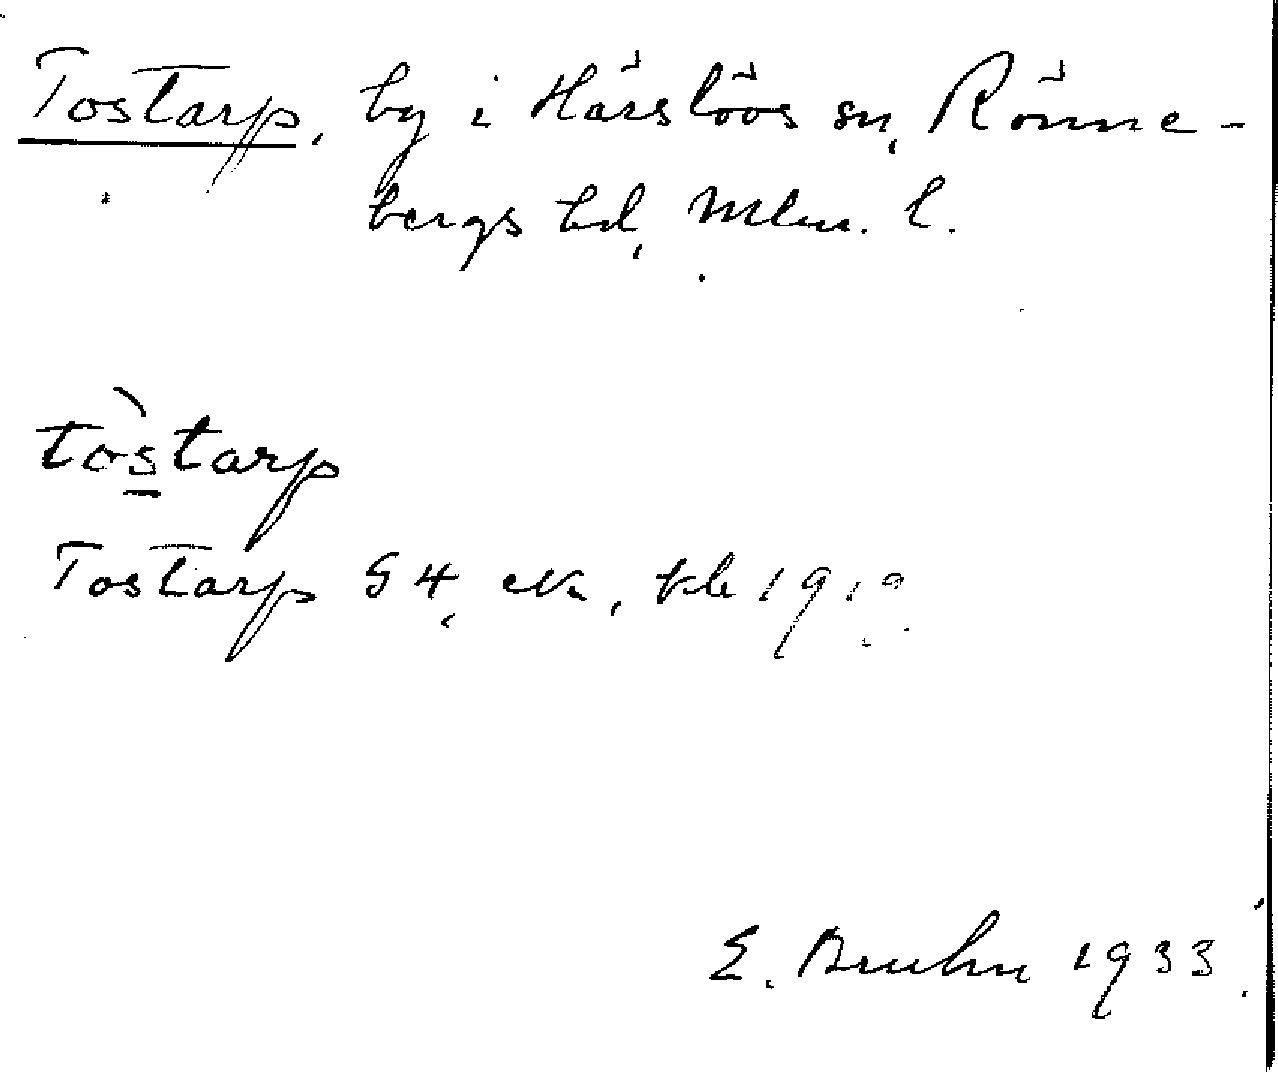 Tostarp, by i Härslövs sn, Rönne-
bergs hd, Mlm. l.
tòstarp
Tostarp G4, ek, tkb 1910
E. Bruhn 1933.